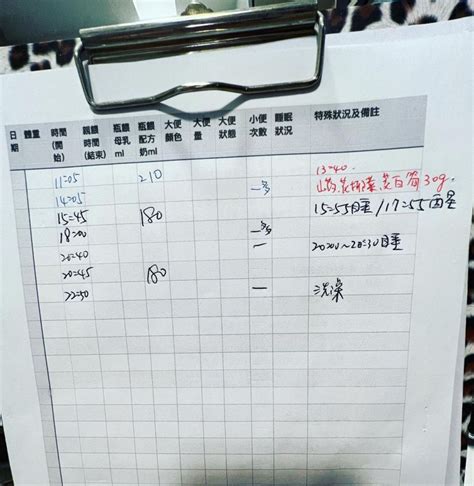 日期 體重 時間(開始) 親餵時間(結束) 瓶餵母乳ml 瓶餵配方奶ml 大便顏色 大便量 大便狀態 小便次數 睡眠狀況 特殊狀況及備註
13=40
11=05 210 一多 30g.
14=05
15=45 180 15=55睡 / 17=55酉星
18=00 一多
20=40 一 2020~20=30睡
20=45 180
22=50 一 洗澡